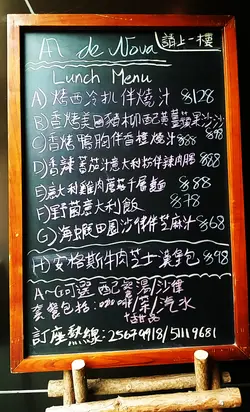 Al de Nova
請上一樓
Lunch Menu
A) 烤西冷扒伴燒汁 $128
B) 香烤美國豬柳配黃薑蘋果沙沙
C) 香烤鴨胸伴香橙燒汁 $88
D) 香辣蕃茄汁意大利粉伴辣肉腸 $88
E) 意大利雞肉蘑菇千層麵 $88
F) 野菌意大利飯 $78
G) 海蝦田園沙律伴芝麻汁 $68
H) 安格斯牛肉芝士漢堡包 $98
A~G可選配餐湯/沙律
套餐包括:咖啡/茶/汽水
+甜品
訂座熱線:25679918/51119681